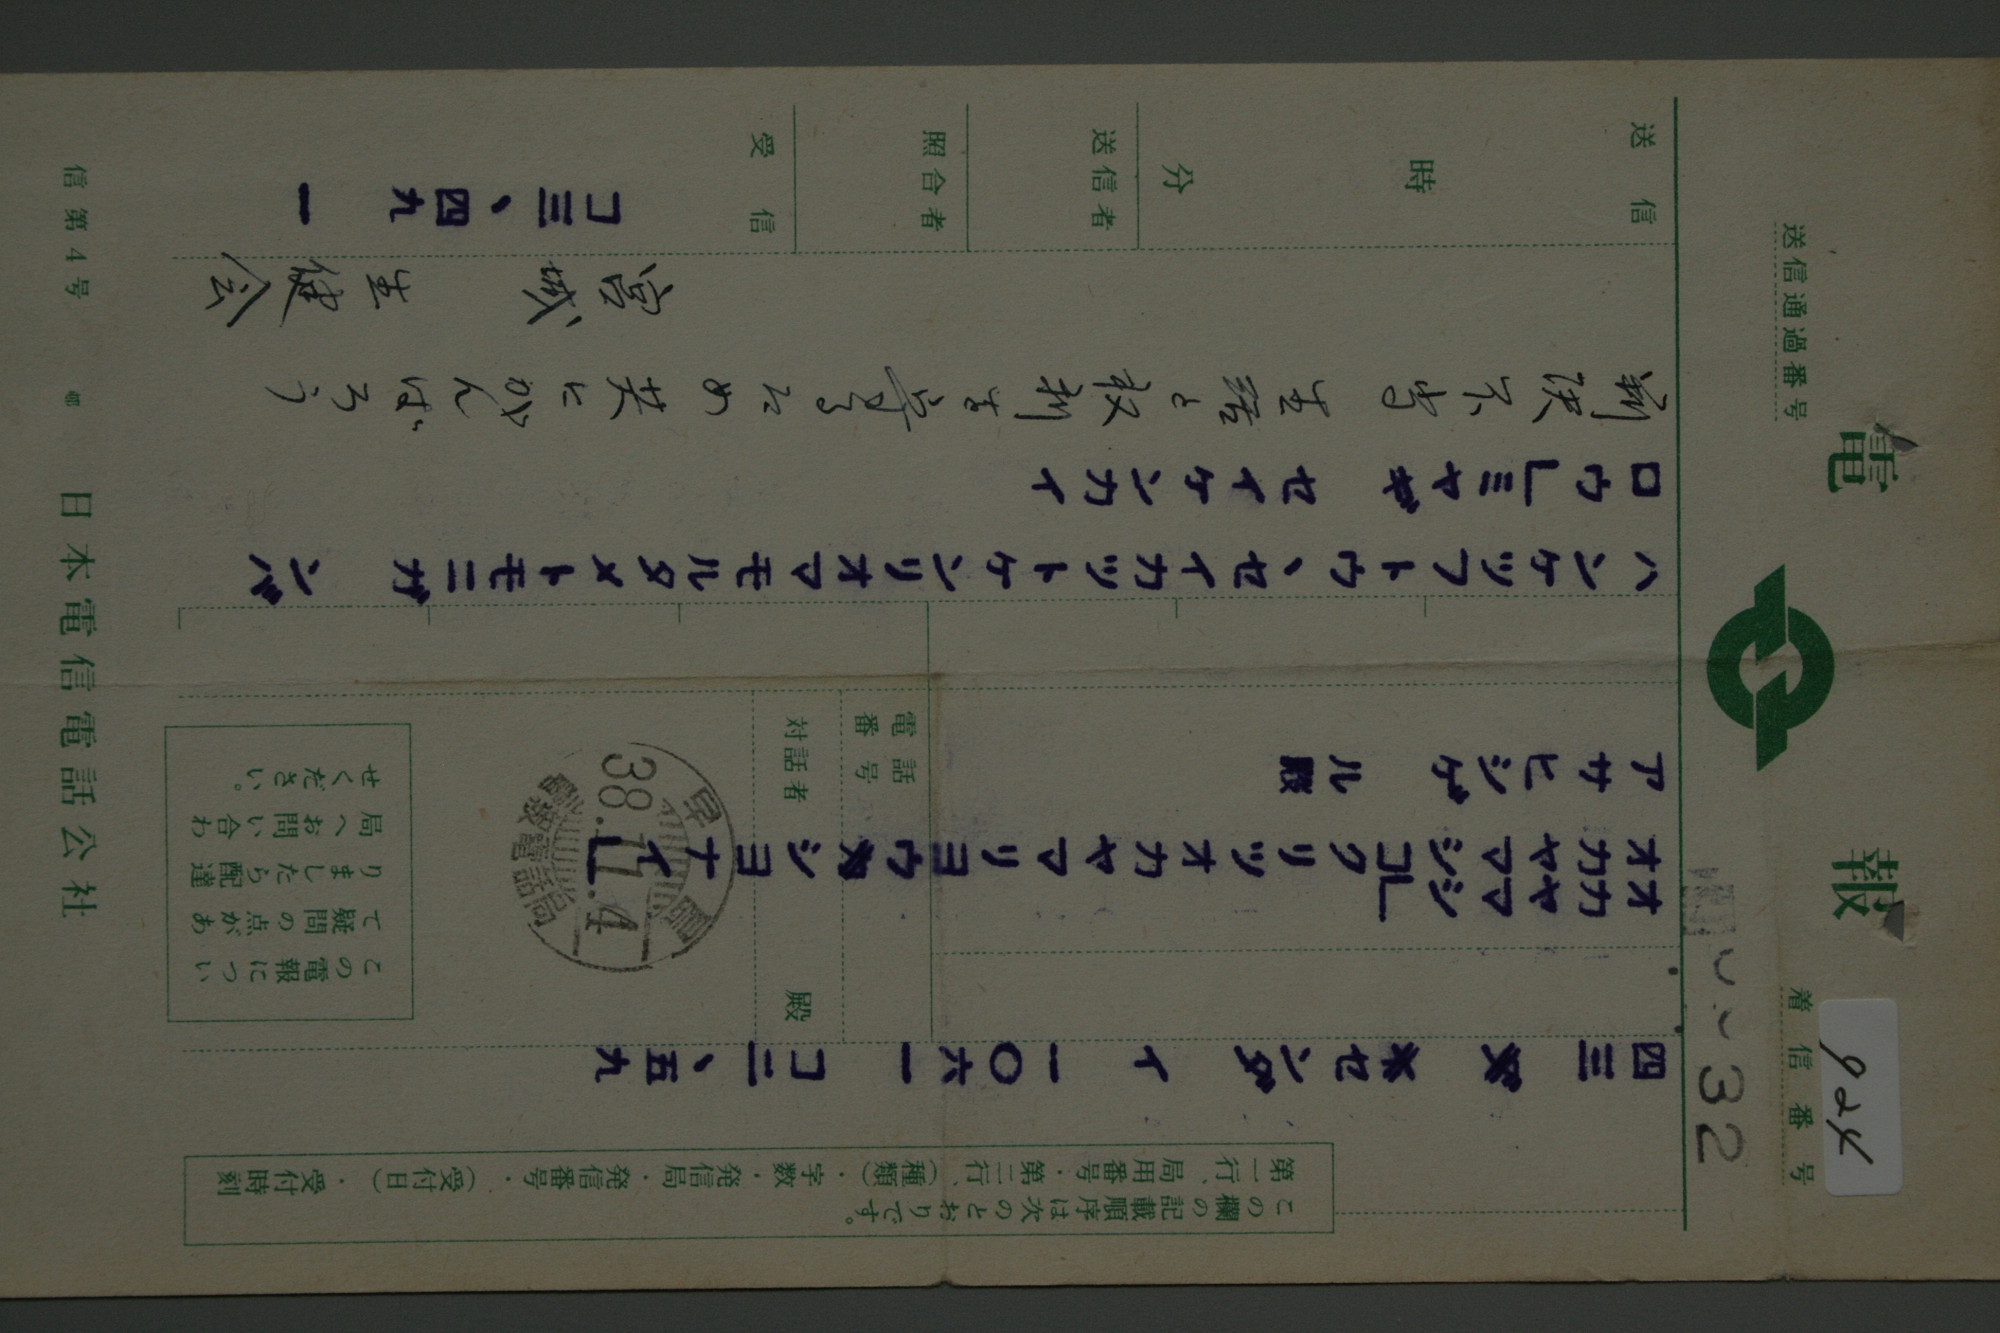 電報
送信通過番号
着信番号
924
32
この欄の記載順序は次のとおりです。
第一行、局用番号・第二行、(種類)・字数・発信局・発信番号・(受付日)・受付時刻
四三 センダイ 一〇六一 コ二、五九
オカヤマシ
オカヤマシコクリツオカヤマリヨウシヨナイ」
アサヒシゲル殿
電話番号
対話者 殿
38.11.4
この電報について疑問の点がありましたら配達局へお問い合わせください。
ハンケツフトウ、セイカツトケンリオマモルタメトモニガンバ
ロウ」ミヤギ セイケンカイ
判決不当 生活と権利を守るため 共にがんばろう
宮城 生健会
送信 時 分
送信者
照合者
受信
コ三、四九 一
信第4号
日本電信電話公社